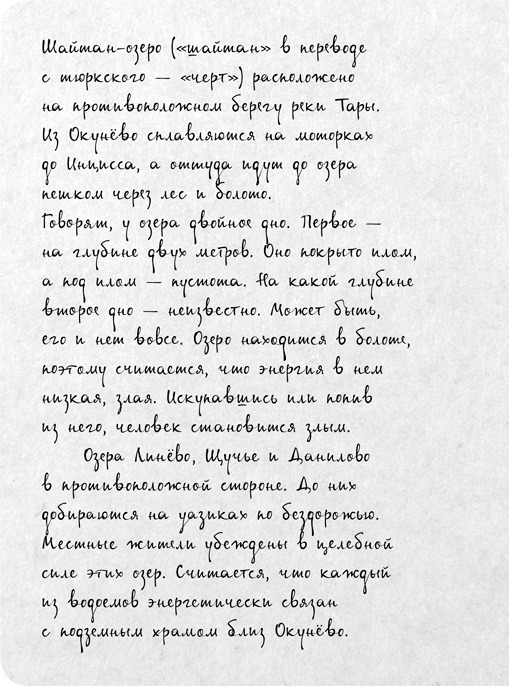 Шайтан-озеро («шайтан» в переводе
с тюркского — «черт») расположено
на противоположном берегу реки Тары.
Из Окунёво сплавляются на моторках
до Инцисса, а оттуда идут до озера
пешком через лес и болото.
Говорят, у озера двойное дно. Первое —
на глубине двух метров. Оно покрыто илом,
а под илом — пустота. На какой глубине
второе дно — неизвестно. Может быть,
его и нет вовсе. Озеро находится в болоте,
поэтому считается, что энергия в нем
низкая, злая. Искупавшись или попив
из него, человек становится злым.
Озера Линёво, Щучье и Данилово
в противоположной стороне. До них
добираются на уазиках по бездорожью.
Местные жители убеждены в целебной
силе этих озер. Считается, что каждый
из водоемов энергетически связан
с подземным храмом близ Окунёво.